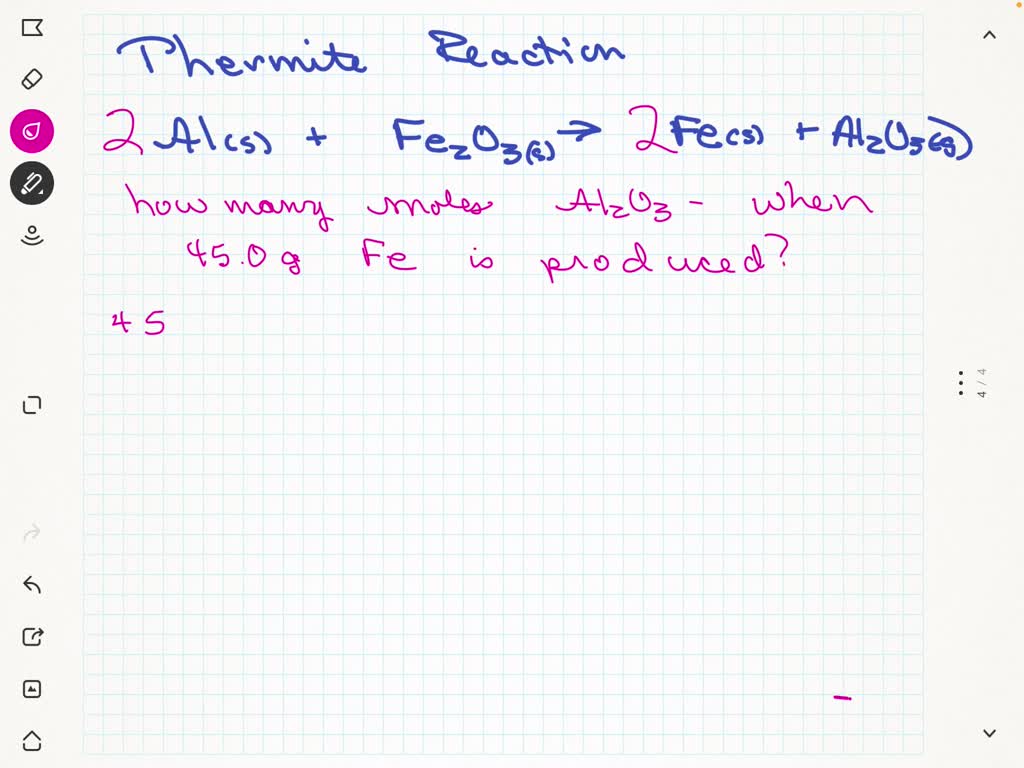 Thermite Reaction
2 Al(s) + Fe₂O₃(s) → 2 Fe(s) + Al₂O₃(s)
how many moles Al₂O₃ - when
45.0 g Fe is produced?
45
4 / 4